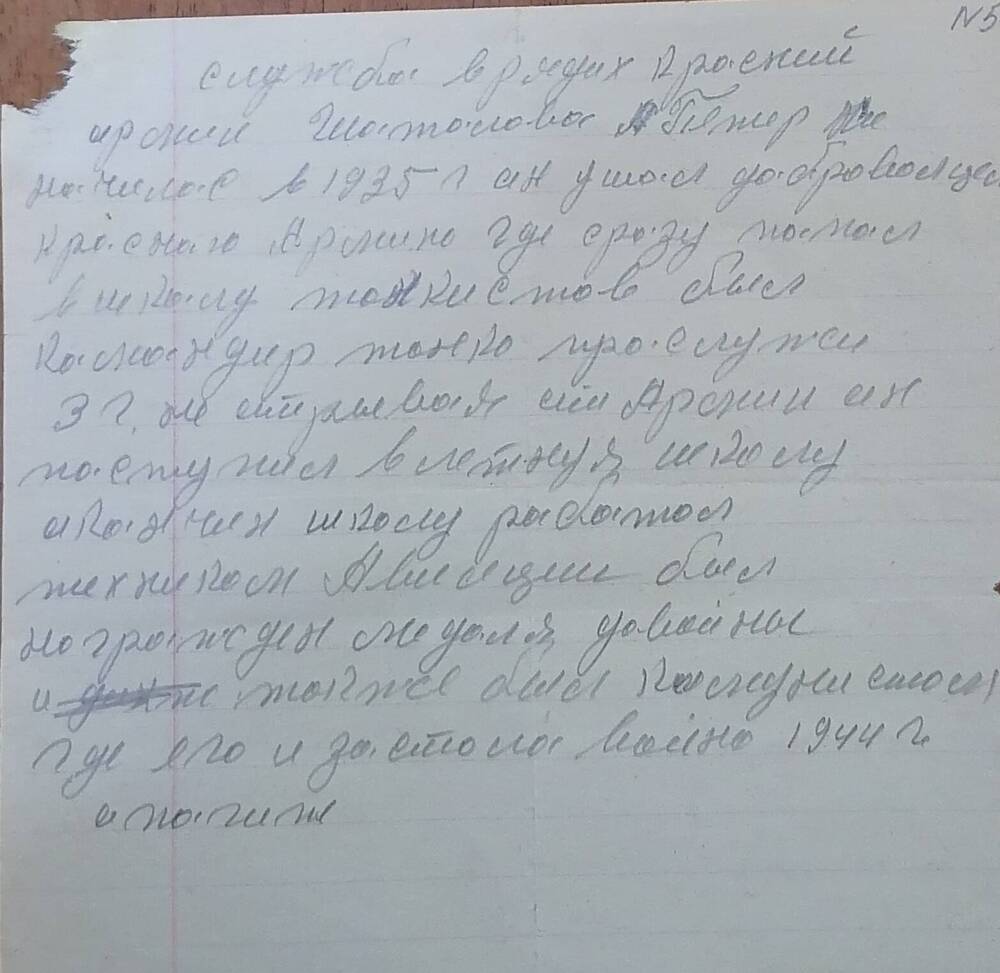 N5
служба в рядих Красний
армии Шаталова Пётр
началас в 1935 г ан ушол добровольцем
Красною Армию где сразу попал
в школу танкистов был
командир танка прослужи
3 г. не отрывая от Армии ан
поступил в летнуя школу
аканчин школу работал
техником Авиации был
награжден медаля довойны
и также был Камунистом
где его и застала война 1944 г.
и погиб